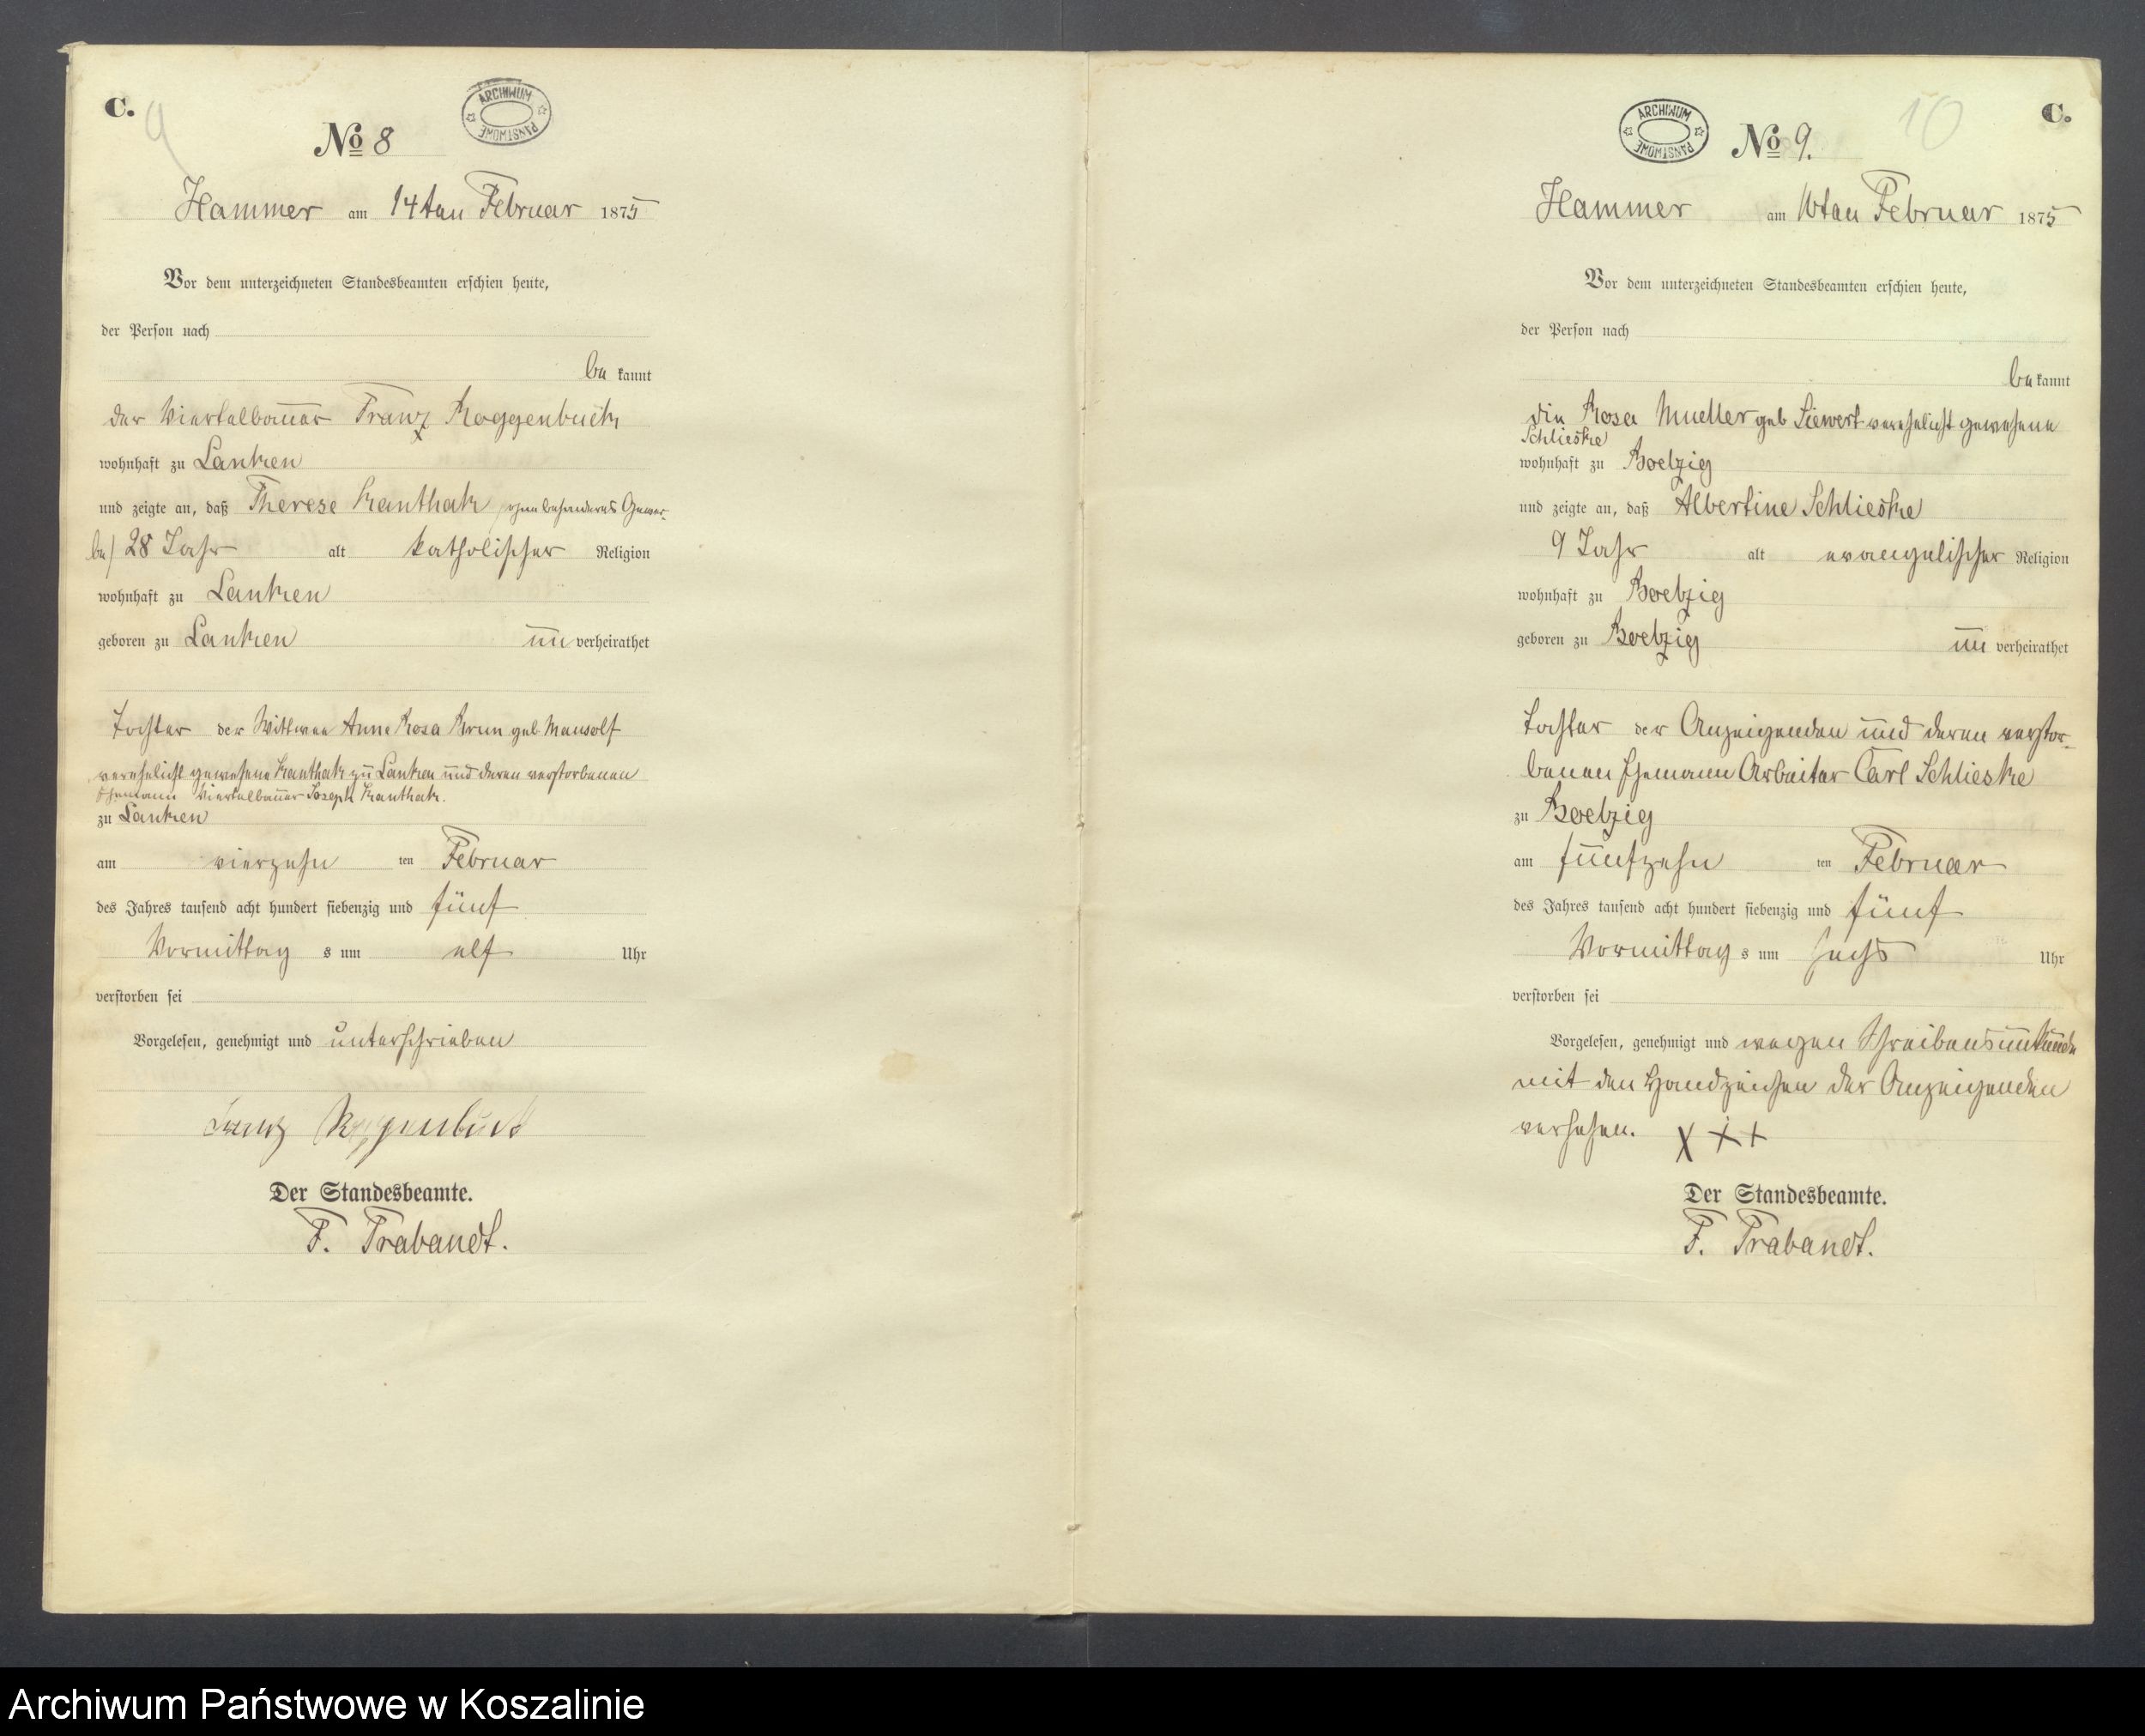 C.
9
ARCHIWUM PAŃSTWOWE
No 8
Hammer am 14ten Februar 1875
Vor dem unterzeichneten Standesbeamten erschien heute,
der Person nach
be kannt
der Viertelbauer Franz Roggenbuck
wohnhaft zu Lanken
und zeigte an, daß Therese Kanthak /ohne besonderes Gewer-
be/ 28 Jahr alt katholischer Religion
wohnhaft zu Lanken
geboren zu Lanken un verheirathet
Tochter der Wittwee Anne Rosa Brun geb Mansolf
verehelicht gewesene Kanthak zu Lanken und deren verstorbenen
Ehemann Viertelbauer Joseph Kanthak.
zu Lanken
am vierzehn ten Februar
des Jahres tausend acht hundert siebenzig und fünf
Vormittag s um elf Uhr
verstorben sei
Vorgelesen, genehmigt und unterschrieben
Franz Roggenbuck
Der Standesbeamte.
F. Trabandt.
10
C.
ARCHIWUM PAŃSTWOWE
No 9.
Hammer am 16ten Februar 1875
Vor dem unterzeichneten Standesbeamten erschien heute,
der Person nach
be kannt
die Rosa Mueller geb Siewert verehelicht gewesene
Schlieske
wohnhaft zu Boelzig
und zeigte an, daß Albertine Schlieske
9 Jahr alt evangelischer Religion
wohnhaft zu Boelzig
geboren zu Boelzig un verheirathet
Tochter der Anzeigenden und deren verstor-
benen Ehemann Arbeiter Carl Schlieske
zu Boelzig
am fünfzehn ten Februar
des Jahres tausend acht hundert siebenzig und fünf
Vormittag s um sechs Uhr
verstorben sei
Vorgelesen, genehmigt und wegen Schreibensunkunde
mit den Handzeichen der Anzeigenden
versehen. X X +
Der Standesbeamte.
F. Trabandt.
Archiwum Państwowe w Koszalinie